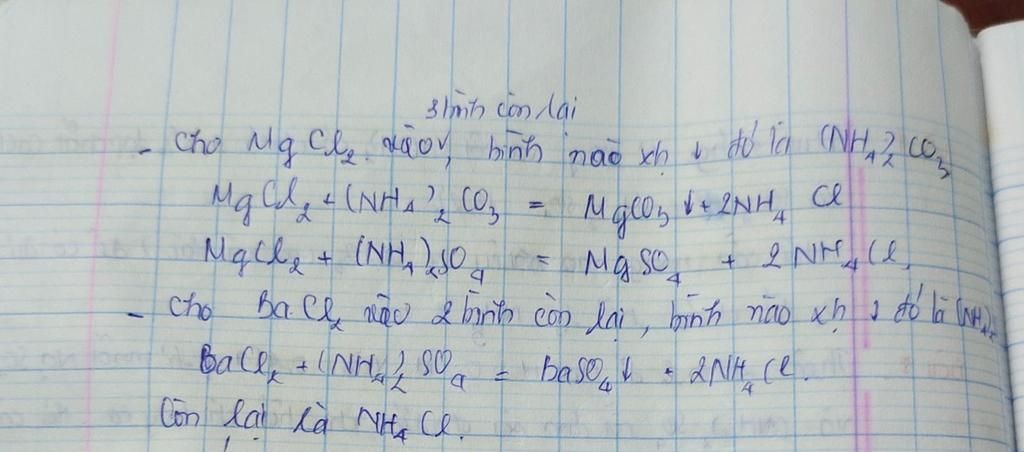 3 bình còn lại
- Cho MgCl₂ vào, bình nào xh ↓ đó là (NH₄)₂CO₃
MgCl₂ + (NH₄)₂CO₃ = MgCO₃↓ + 2NH₄Cl
MgCl₂ + (NH₄)₂SO₄ = MgSO₄ + 2NH₄Cl
- Cho BaCl₂ vào 2 bình còn lại, bình nào xh ↓ đó là (NH₄)₂
BaCl₂ + (NH₄)₂SO₄ = BaSO₄↓ + 2NH₄Cl.
Còn lại là NH₄Cl.